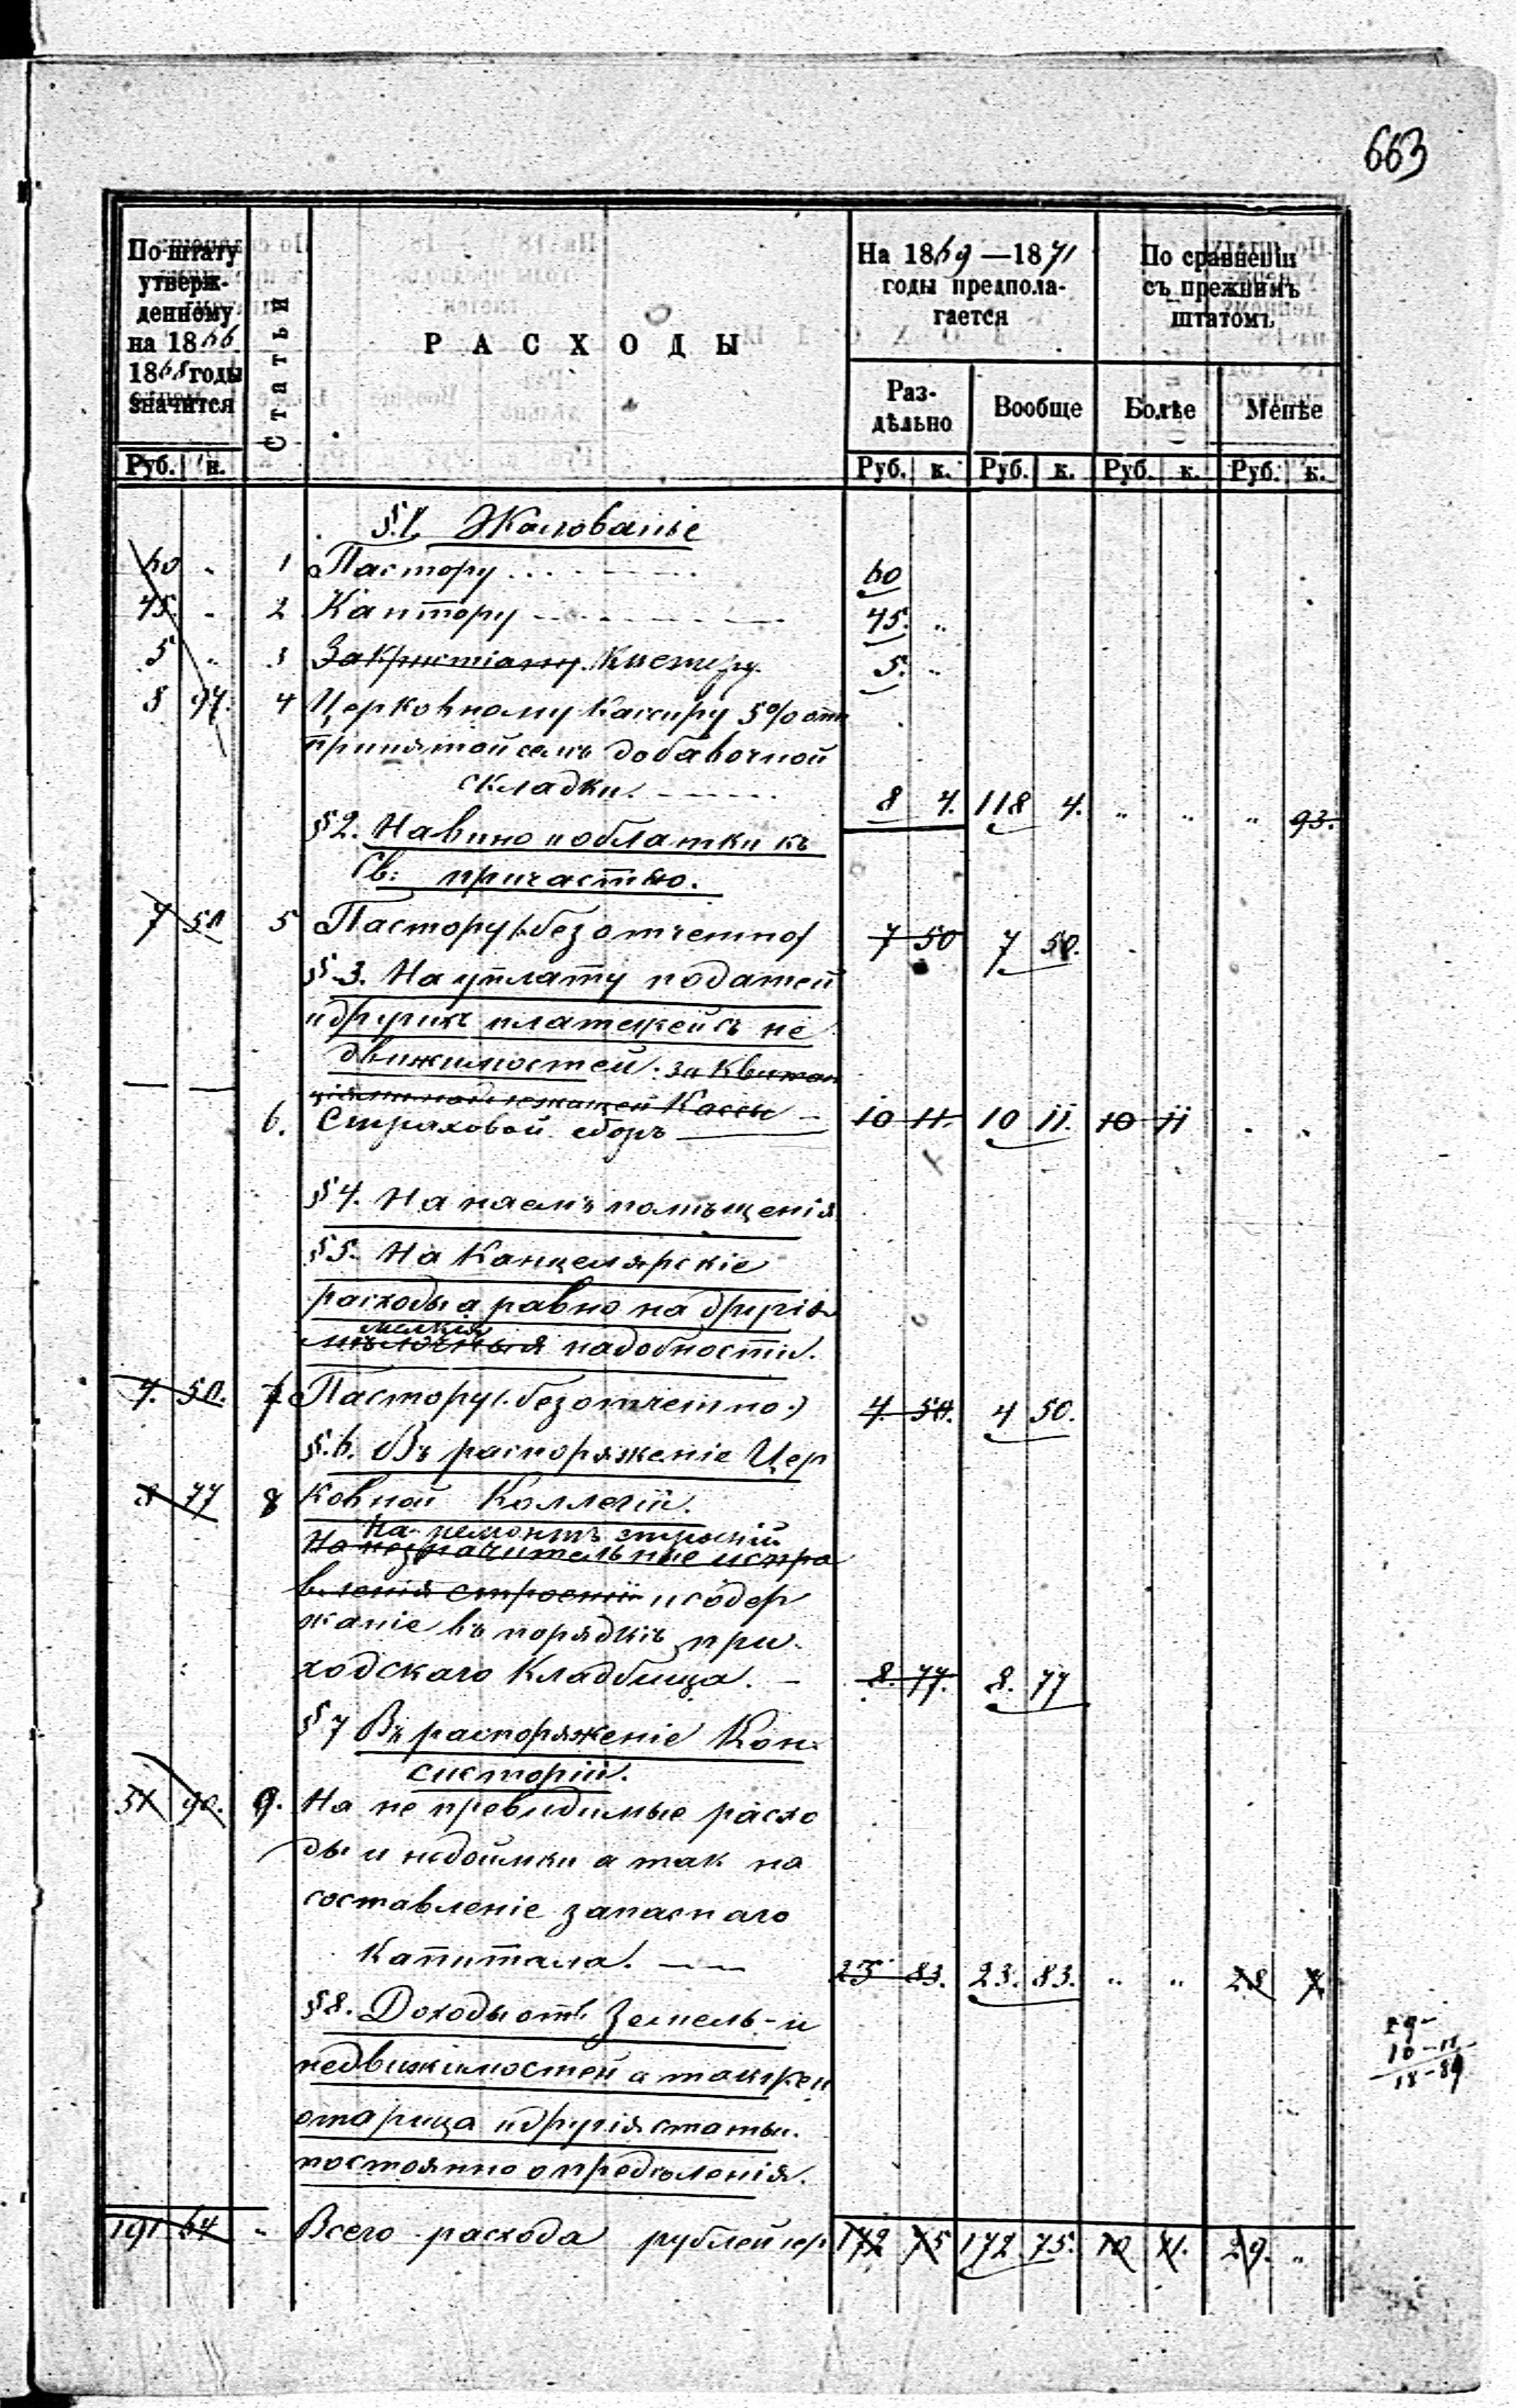 663
По штату утверж-денному на 1866 1868 годы значится
Статьи
РАСХОДЫ
На 1869—1871 годы предпола-гается
По сравненiи съ прежнимъ штатомъ
Раз-дѣльно Вообще Болѣе Менѣе
Руб. к. Руб. к. Руб. к. Руб. к. Руб. к.
§.1. Жалованье
60 „ 1 Пастору 60
45 „ 2 Кантору 45. „
5 „ 3 Закристiану. Кистеру. 5. „
8 97. 4 Церковному Кассиру 5% отъ
принятой имъ добавочной
складки. 8 4. 118 4. „ „ „ 93.
§2. На вино и облатки къ
Св: причастью.
7 50 5 Пастору /:безотчетно/ 7 50 7 50.
§.3. На уплату податей
и другихъ платежей съ не
движимостей. за квитан
цiями надлежащей Кассы
— — 6. Страховой сборъ 10 11. 10 11. 10 11 „ „
§4. На наемъ помѣщенiя
§5. На Канцелярскiе
расходы а равно на другiя
мелкiя
мѣлочныя надобности.
4. 50. 7 Пастору (.безотчетно.) 4 50. 4 50.
§.6. Въ распоряженiе Цер
8 77 8 ковной Коллегiи.
На ремонтъ строенiй
На незначительные испра
вленiя строенiй и содер
жанiе въ порядкѣ при-
ходскаго кладбища. 8. 77. 8. 77
§7 Въ распоряженiе Кон-
систорiи.
51 90. 9. На не превидимые расхо
ды и недоимки а так на
составленiе запаснаго
Капитала. 23 83. 23. 83. „ „ 28 7
§8. Доходы отъ Земель и
недвижимостей а также и
и другiя статьи.
постоянно опредѣленiя.
29-
10-11
18-89
191 64 „ Всего расхода рублей сер. 172 75 172. 75. 10 11. 29. „